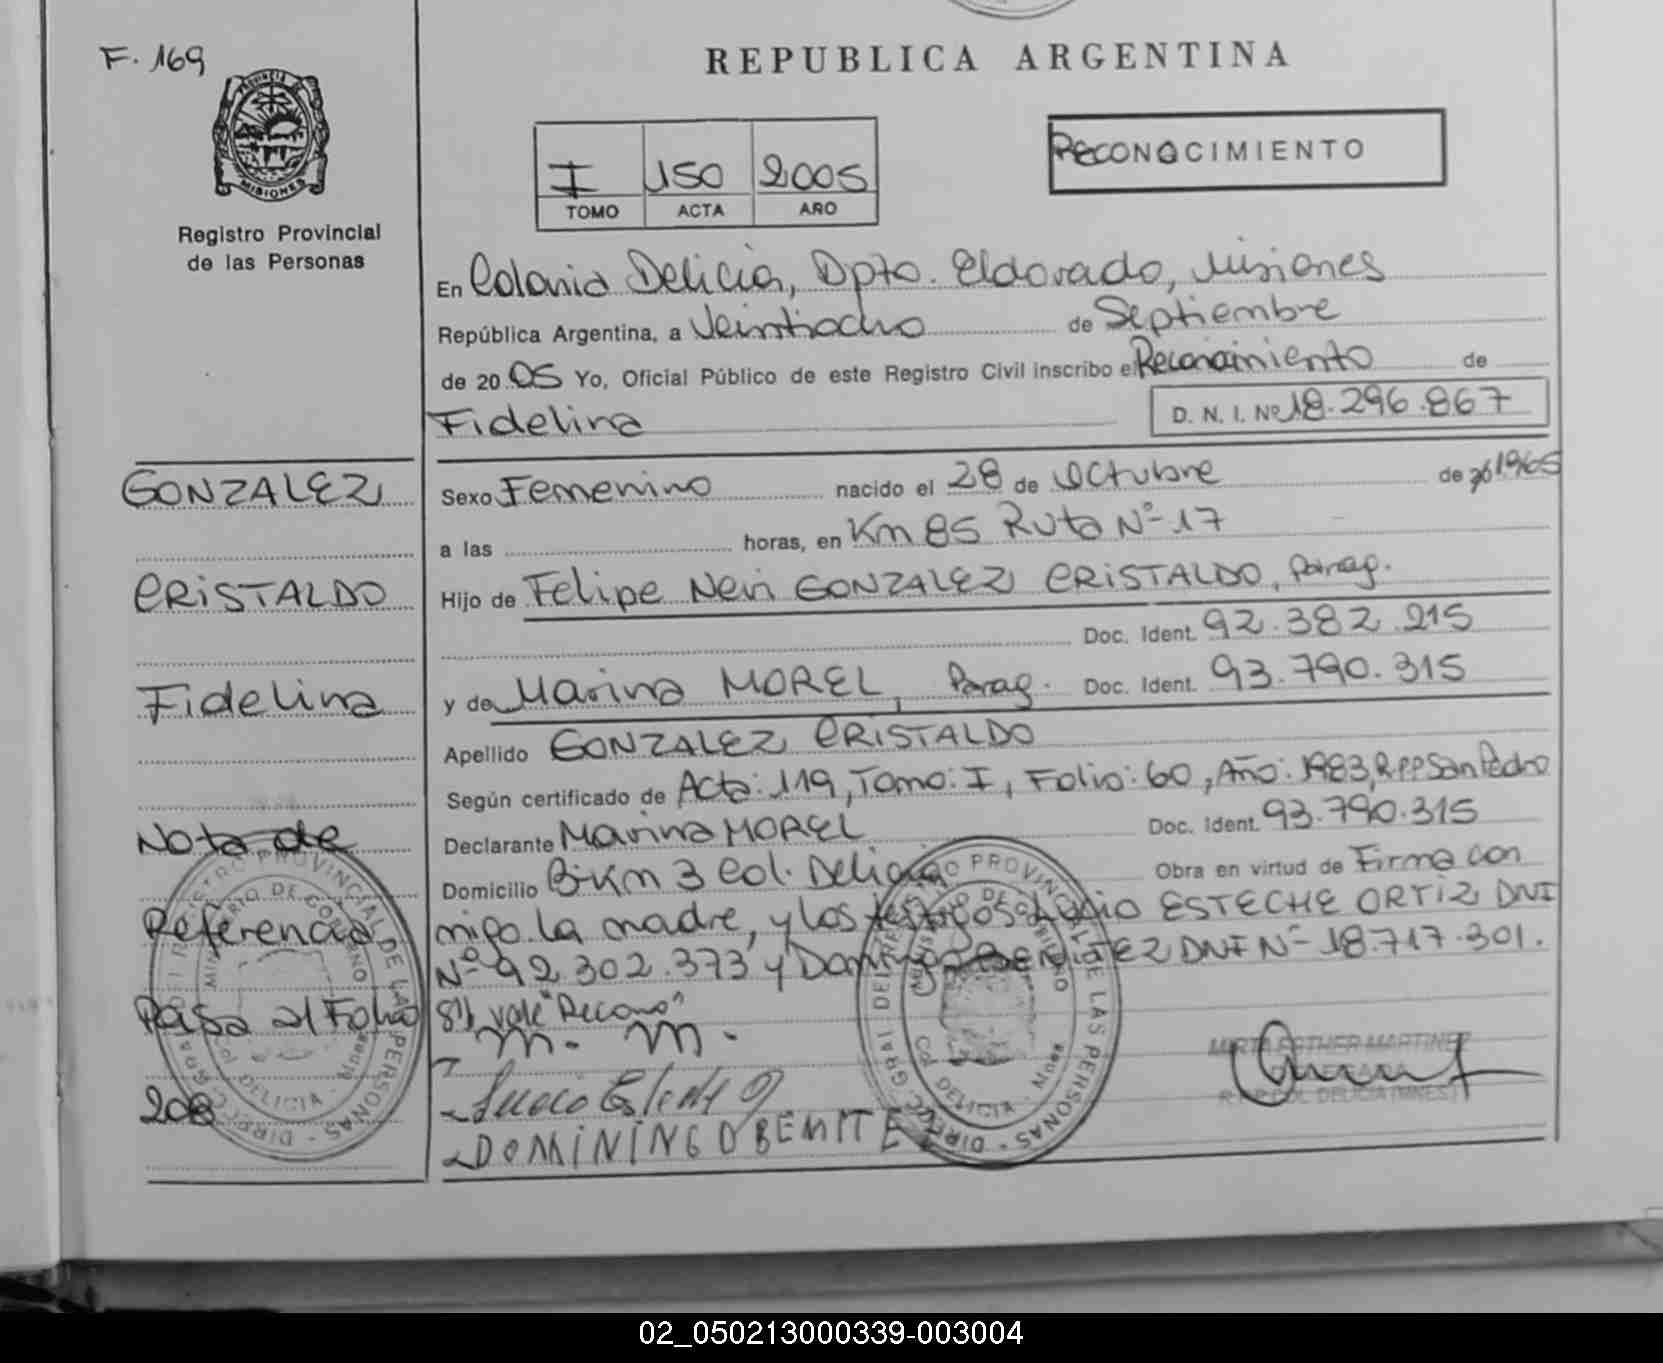 F. 169
REPUBLICA ARGENTINA
PROVINCIA
MISIONES
Registro Provincial
de las Personas
I 150 2005
TOMO ACTA AÑO
RECONOCIMIENTO
En Colonia Delicia, Dpto. Eldorado, Misiones
República Argentina, a Veintiocho de Septiembre
de 20 05 Yo, Oficial Público de este Registro Civil inscribo el Reconocimiento de
Fidelina D. N. I. Nº 18.296.867
GONZALEZ
CRISTALDO
Fidelina
Sexo Femenino nacido el 28 de Octubre de 1965
a las horas, en Km 85 Ruta Nº 17
Hijo de Felipe Neri GONZALEZ CRISTALDO, Parag.
Doc. Ident. 92.382.215
y de Marina MOREL, Parag. Doc. Ident. 93.790.315
Apellido GONZALEZ CRISTALDO
Según certificado de Acta: 119, Tomo: I, Folio: 60, Año: 1983, R.P.P San Pedro
Declarante Marina MOREL Doc. Ident. 93.790.315
Domicilio B- Km 3 Col. Delicia Obra en virtud de Firma con
migo la madre, y los testigos ESTECHE ORTIZ DNI
Nº 92.302.373 y DNI Nº 18.717.301.
S/l vale "Recono"
m. m.
DOMININGO BENITE
Nota de
Referencia
Pasa al Folio
208
MIRTA ESTHER MARTINEZ
R.P.P. COL. DELICIA (MNES)
DIRECC. GRAL. DEL REGISTRO PROVINCIAL DE LAS PERSONAS
MINISTERIO DE GOBIERNO
COL. DELICIA - MISIONES
DIRECC. GRAL. DEL REGISTRO PROVINCIAL DE LAS PERSONAS
MINISTERIO DE GOBIERNO
COL. DELICIA - MNES
02_050213000339-003004